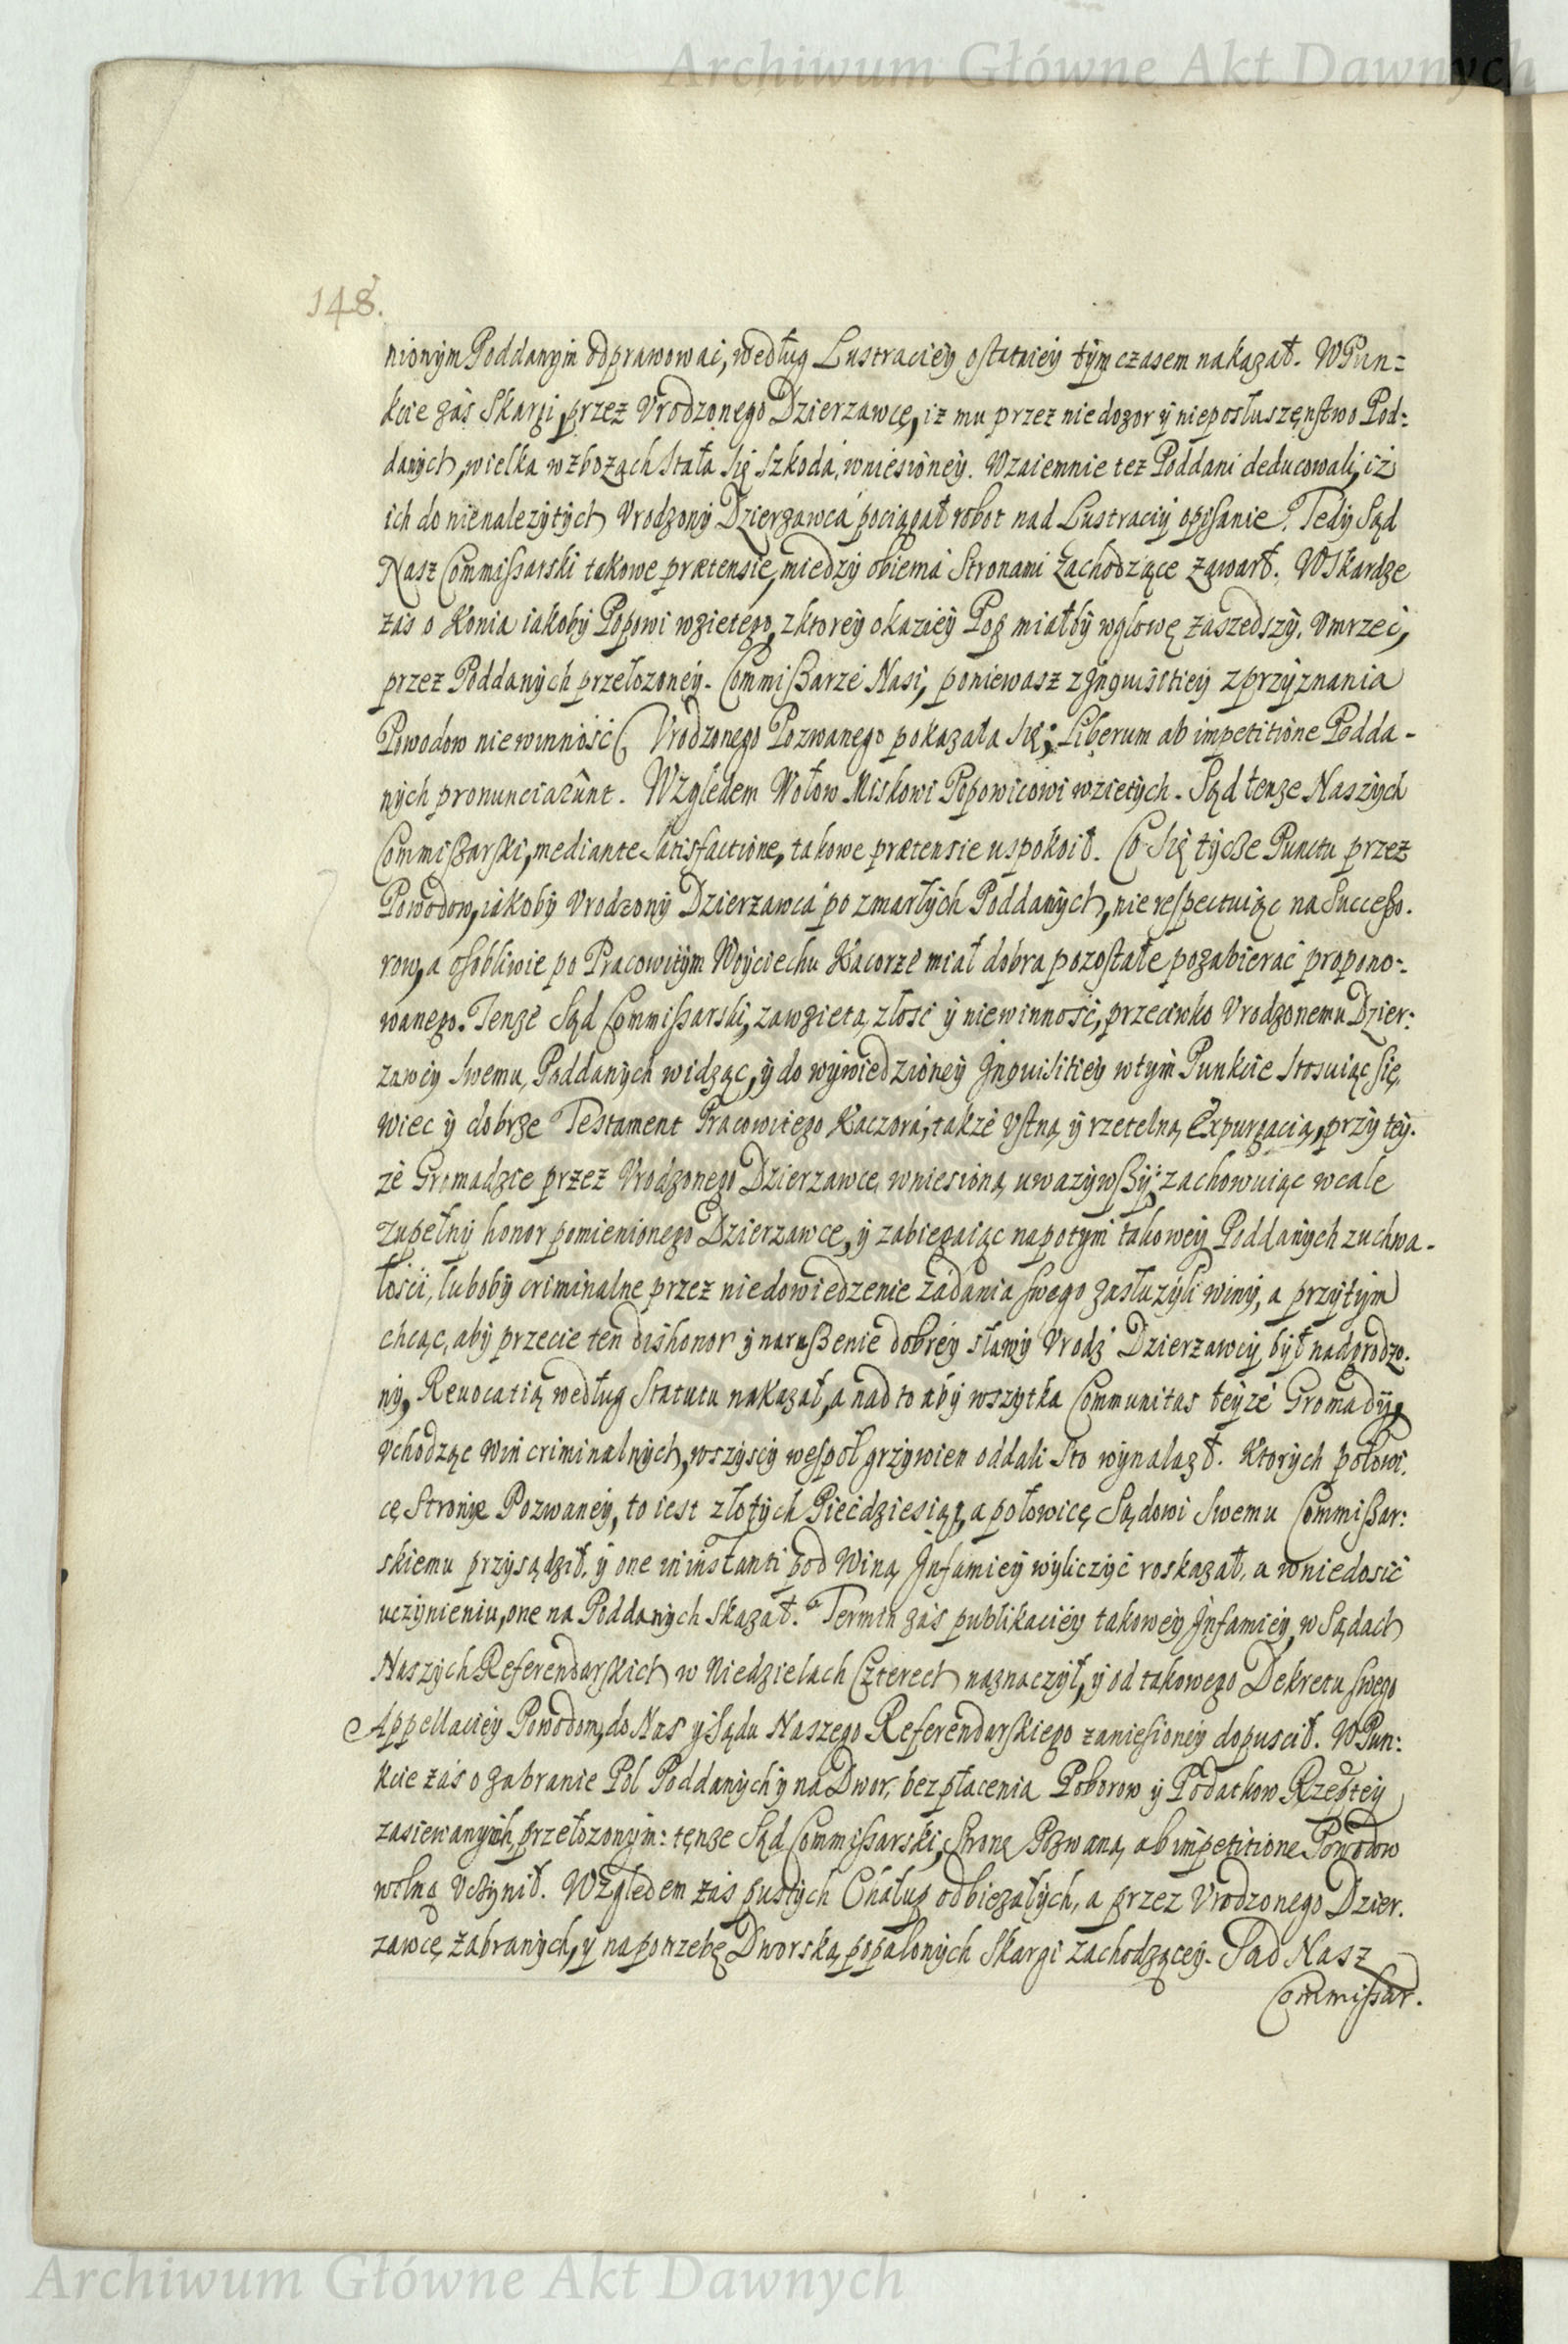 Archiwum Główne Akt Dawnych
148.
nionym Poddanym odprawować, według Lustraciey ostatniey tym czasem nakazał. W Pun=
kcie zaś Skargi, przez Vrodzonego Dzierzawcę, iz mu przez niedozor y nieposłuszęnstwo Pod=
danych, wielka w zbozach stała się szkoda, wniesioney. Wzaiemnie tez Poddani deducowali, iż
ich do nienalezytych Vrodzony Dzierzawca pociągał robot nad Lustraciy opisanie. Tedy Sąd
Nasz Commissarski takowe prætensie, miedzy obiema Stronami zachodzące zawarł. W Skardze
zas o Konia iakoby Popowi wzietego, z ktorey okaziey Pop miałby w głowę zaszedszy, Vmrzeć,
przez Poddanych przełozoney. Commißarze Nasi, poniewasz z Jnquisitiey z przyznania
Powodow niewinność Vrodzonego Pozwanego pokazała się; Liberum ab impetitione Podda-
nych pronunciarunt. Względem Wołow Miskowi Popowicowi wzietych. Sąd tenze Naszych
Commißarski, mediante Satisfactione, takowe prætensie uspokoił. Co się tycze Punctu przez
Powodow, iakoby Vrodzony Dzierzawca po zmarłych Poddanych, nie respectuiąc na Successo.
row, a osobliwie po Pracowitym Woyciechu Kacorze miał dobra pozostałe pozabierać propono=
wanego. Tenze Sąd Commissarski, zawzietą złość y niewinność, przeciwko Vrodzonemu Dzier=
zawcy swemu, Poddanych widząc, y do wywiedzioney Jnquisitiey w tym Punkcie stosuiąc się,
wiec y dobrze Testament Pracowitego Kaczora, także Vstną y rzetelną Expurgacią, przy tey.
że Gromadzie przez Vrodzonego Dzierzawce, wniesioną uwazywßy; zachowuiąc wcale
zupełny honor pomienionego Dzierzawce, y zabiegaiąc napotym takowey Poddanych zuchwa-
łości, luboby criminalne przez niedowiedzenie zadania swego zasłuzyli winy, a przytym
chcąc, aby przecie ten dishonor y narußenie dobrey sławy Vrodz Dzierzawcy, był nadgrodzo.
ny, Reuocatią według Statutu nakazał, a nad to aby wszytka Communitas teyze Gromady,
vchodząc win criminalnych, wszyscy wespoł grzywien oddali sto wynalazł. Ktorych połowi.
cę Stronie Pozwaney, to iest złotych Piećdziesiąt, a połowicę Sądowi swemu Commißar=
skiemu przysądził, y one in instanti pod Winą Jnfamiey wyliczyć roskazał, a w niedosić
uczynieniu, one na Poddanych skazał. Termin zaś publikaciey takowey Jnfamiey, w Sądach
Naszych Referendarskich w Niedzielach Czterech naznaczył, y od takowego Dekretu swego
Appellaciey Powodom, do Nas y Sądu Naszego Referendarskiego zaniesioney dopuscił. W Pun=
kcie zaś o zabranie Pol Poddanych y na Dwor, bez płacenia Poborow y Podatkow Rzeptey
zasiewanych, przełozonym: tęnze Sąd Commissarski, Stronę Pozwaną ab impetitione Powodow
wolną Vczynił. Względem zaś pustych Chałup odbiegałych, a przez Vrodzonego Dzier.
zawcę, zabranych, y na potrzebę Dworską popalonych Skargi zachodzącey. Sąd Nasz
Commissar.
Archiwum Główne Akt Dawnych